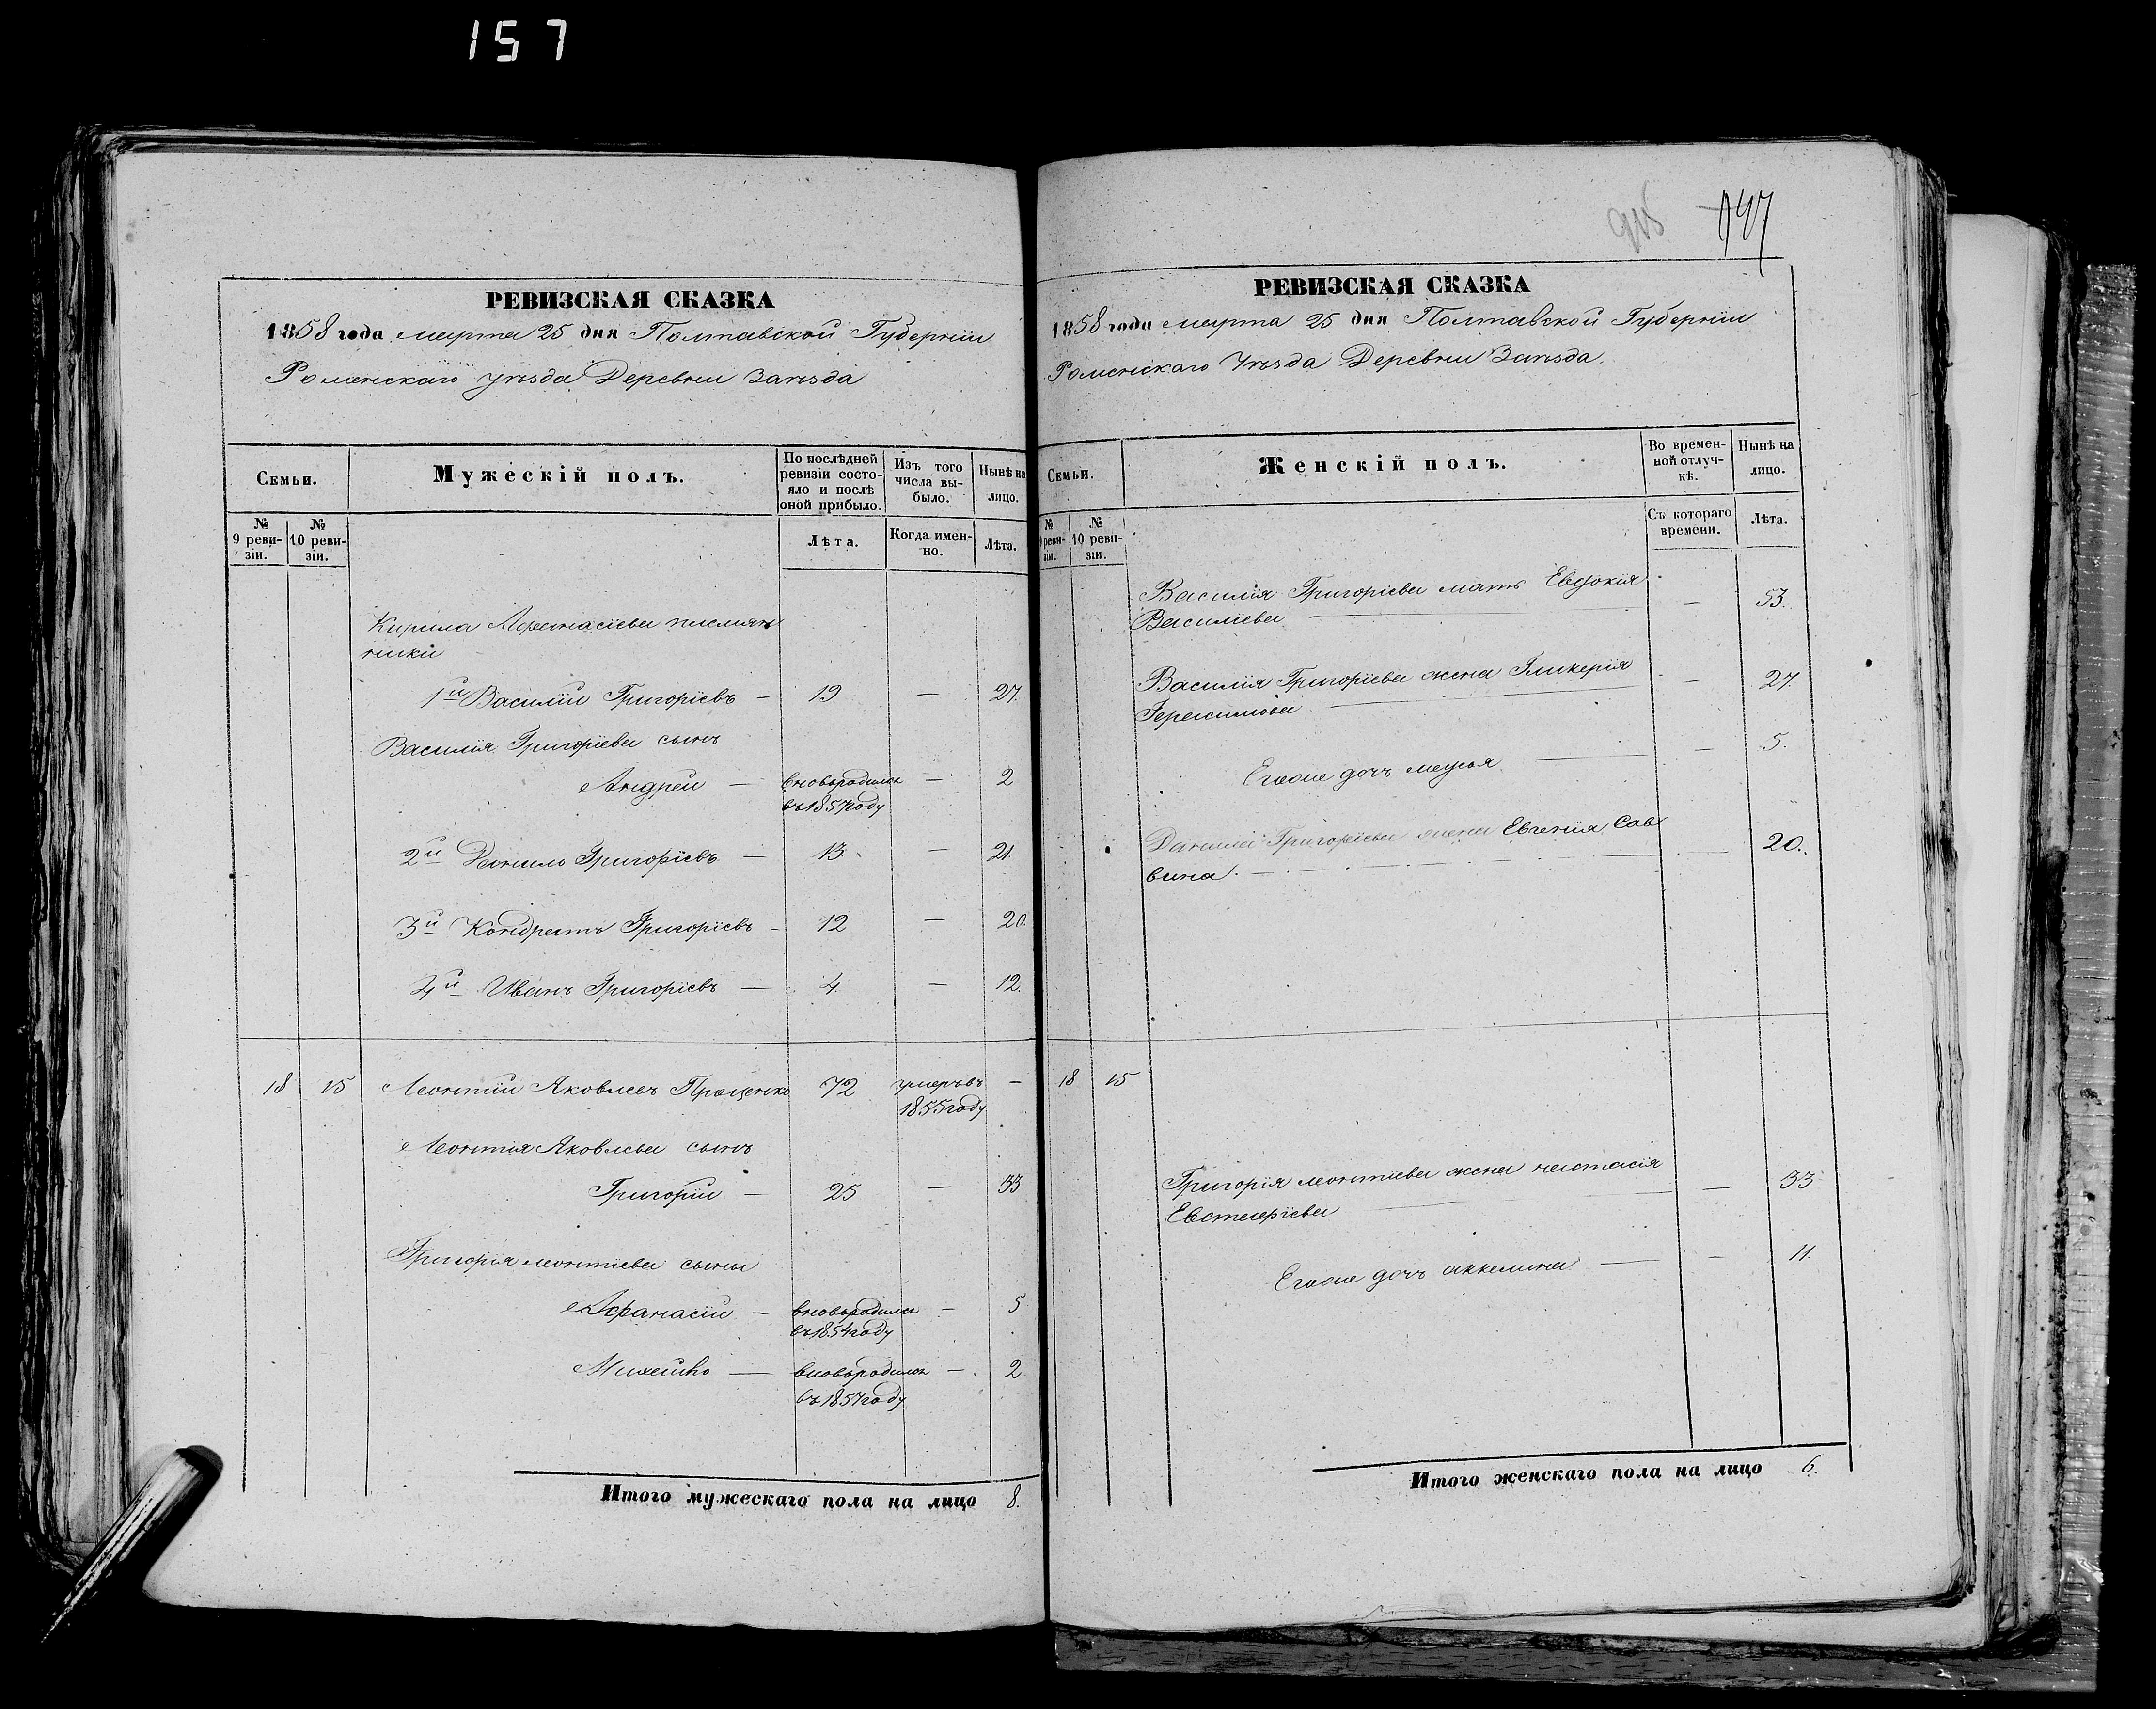 157
РЕВИЗСКАЯ СКАЗКА
1858 года марта 25 дня Полтавской Губерніи
Роменскаго уѣзда Деревни Заѣзда
Семьи.
Мужескій полъ.
По послѣдней ревизіи состояло и послѣ оной прибыло.
Изъ того числа выбыло.
Ныне на лицо.
№ 9 ревизіи.
№ 10 ревизіи.
Лѣта.
Когда именно.
Лѣта.
Кирила Афанасіева племян
ники
1й Василій Григоріевъ — 19 — 27.
Василія Григоріева сынъ
Андрей — вновьродился — 2
въ 1857 году
2й Данило Григоріевъ — 13 — 21.
3й Кондратъ Григоріевъ — 12 — 20.
4й Иванъ Григоріевъ — 4. — 12.
18 15 Леонтій Яковлевъ Проценко 72 умеръ въ —
1855 году
Леонтія Яковлева сынъ
Григорій — 25 — 33
Григорія леонтіева сыны
Афанасій — вновьродился — 5
въ 1854 году
Михайло — вновьродился — 2
въ 1857 году
Итого мужескаго пола на лицо 8.
147
РЕВИЗСКАЯ СКАЗКА
1858 года марта 25 дня Полтавской Губерніи
Роменскаго Уѣзда Деревни Заѣзда.
Семьи.
Женскій полъ.
Во временной отлучкѣ.
Нынѣ на лицо.
№ 9 ревизіи.
№ 10 ревизіи.
Съ котораго времени.
Лѣта.
Василія Григоріева мать Евдокія — 53.
Василіева
Василія Григоріева жена Гликерія — 27.
Герасимова
Егоже дочъ — 5.
Данила Григоріева жена Евгенія Сав — 20.
вина
18 15
Григорія леонтіева жена настасія — 33
Евстафіева
Егоже дочъ аккелина — 11.
Итого женскаго пола на лицо 6.